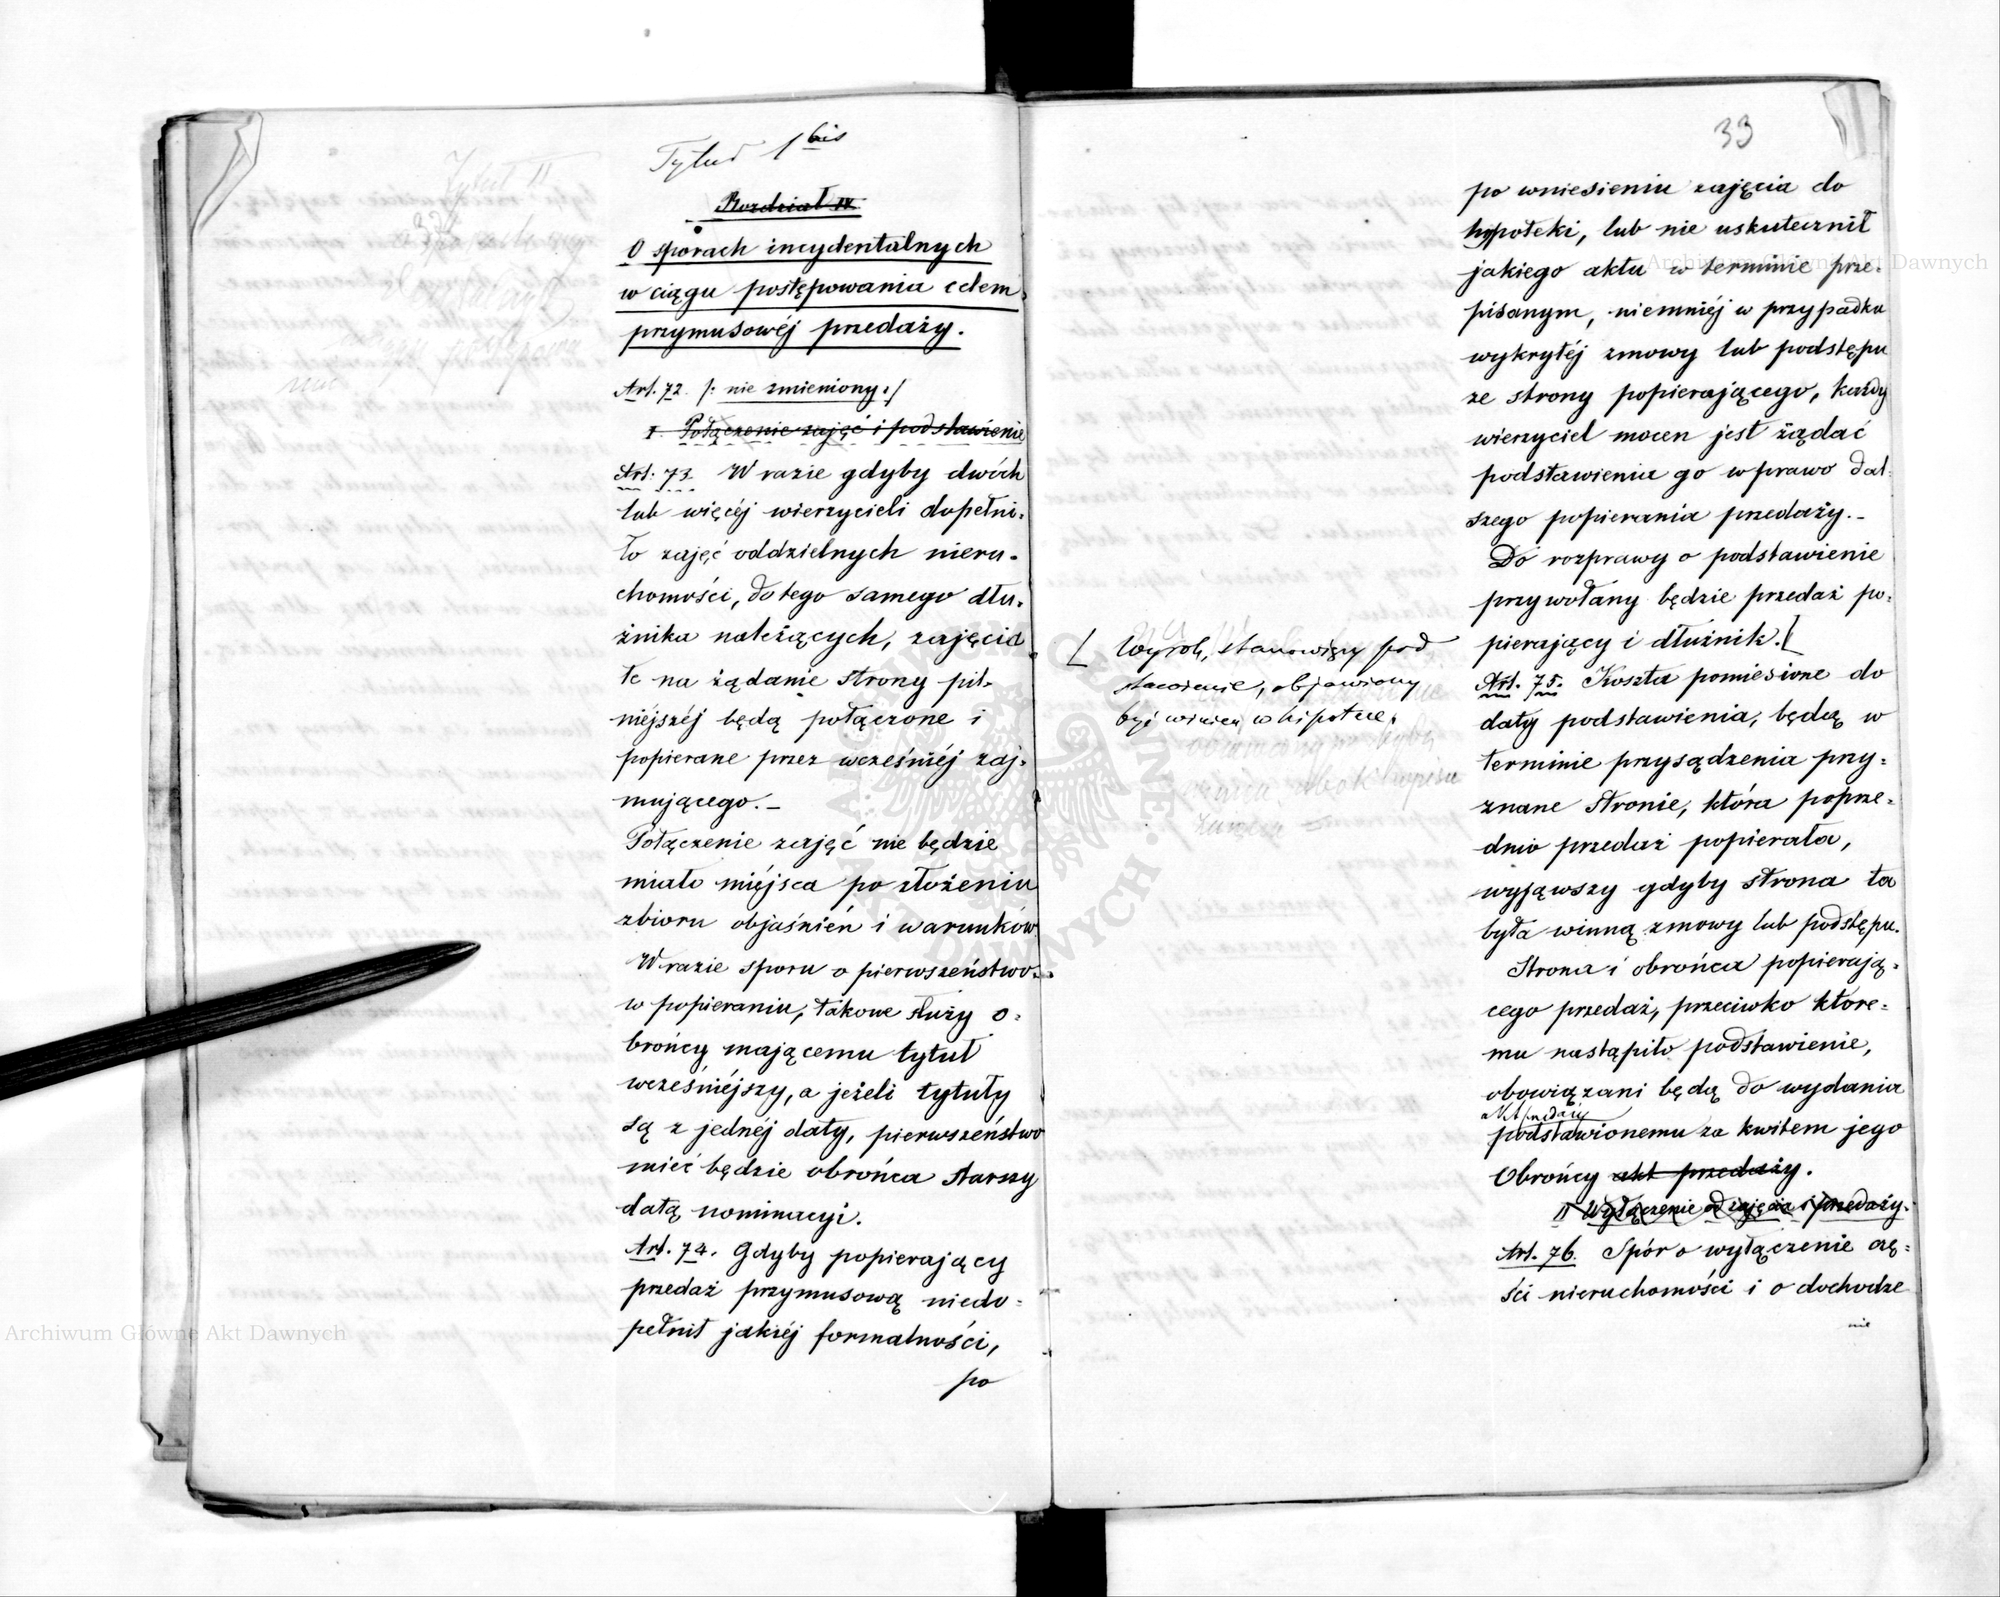 Tytuł 1 bis
Rozdział IV.
O sporach incydentalnych
w ciągu postępowania celem
przymusowéj przedaży.
Art. 72. /: nie zmieniony :/
I. Połączenie zajęć i podstawienie
Art. 73. W razie gdyby dwóch
lub więcéj wierzycieli dopełni-
ło zajęć oddzielnych nieru-
chomości, do tego samego dłu-
żnika należących, zajęcia
te na żądanie strony pil-
niejszéj będą połączone i
popierane przez wcześniéj zaj-
mującego.
Połączenie zajęć nie będzie
miało miéjsca po złożeniu
zbioru objaśnień i warunków
W razie sporu o pierwszeństwo
w popieraniu, takowe służy o-
brońcy mającemu tytuł
wcześniéjszy, a jeżeli tytuły
są z jednéj daty, pierwszeństwo
mieć będzie obrońca starszy
datą nominacyi.
Art. 74. Gdyby popierający
przedaż przymusową niedo-
pełnił jakiéj formalności,
po
33
po wniesieniu zajęcia do
hypoteki, lub nie uskutecznił
jakiego aktu w terminie prze-
pisanym, niemniéj w przypadku
wykrytéj zmowy lub podstępu
ze strony popierającego, każdy
wierzyciel mocen jest żądać
podstawienia go w prawo dal-
szego popierania przedaży.
Do rozprawy o podstawienie
przywołany będzie przedaż po-
pierający i dłużnik. [
[ Wyrok, stanowiący pod
stawienie, objawiony
być winien w hipotece.
Art. 75. Koszta poniesione do
daty podstawienia, będą w
terminie przysądzenia przy-
znane stronie, która poprze-
dnio przedaż popierała,
wyjąwszy gdyby strona ta
była winną zmowy lub podstępu.
Strona i obrońca popierają-
cego przedaż, przeciwko które-
mu nastąpiło podstawienie,
obowiązani będą do wydania
akt przedaży
podstawionemu za kwitem jego
Obrońcy akt przedaży.
II Wyłączenie od zajęcia i przedaży.
Art. 76. Spór o wyłączenie czę-
ści nieruchomości i o dochodze
nie
Archiwum Główne Akt Dawnych
Archiwum Główne Akt Dawnych